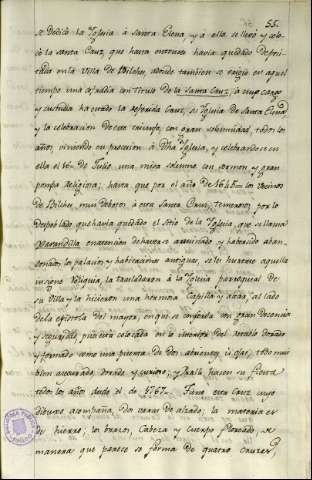 55.
se dedicó la Iglesia á Santa Elena, y á ella se llevó y colo-
có la santa Cruz, que hasta entonces havia quedado depozi-
tada en la Villa de Bilches, adonde tambien se erigio en aquel
tiempo una cofradia con titulo de la Santa Cruz, á cuyo cargo
y custodia ha estado la referida Cruz, su Iglesia de Santa Elena
y la celebracion de este triunfo, con gran solemnidad, todos los
años, viniendo en procesion á dha Iglesia, y celebrandose en
ella el 16 de Julio una misa solemne con sermon y gran
pompa Religiosa; hasta que por el año de 1645 los vecinos
de Bilches, mui debotos á esta Santa Cruz, temerosos, por lo
despoblado que havia quedado el sitio de la Iglesia, que se llama
en atencion de haverse arruinado y haberse aban-
sonado, los palacios y habitacion antiguas, se les hurtase aquella
insigne Reliquia, la trasladaron á la Iglesia parroquial de
su Villa y la hicieron una hermosa Capilla y al lado
de la epistola del mayor, en que se conserva con gran decencia
y seguridad, pues está colocada en lo interior del retablo dorado
y formado como una puerta de dos ojas, todo mui
bien asegurado, dorado y curioso; y la hacen su fiesta
todos los años desde el de 1767. Tiene esta Cruz, cuyo
dibuxo acompaña, dos de alzado, la materia es
de hierro, los brazos, Cabeza y cuerpo floreado, de
manera que parece se forma de quatro Cruzes,